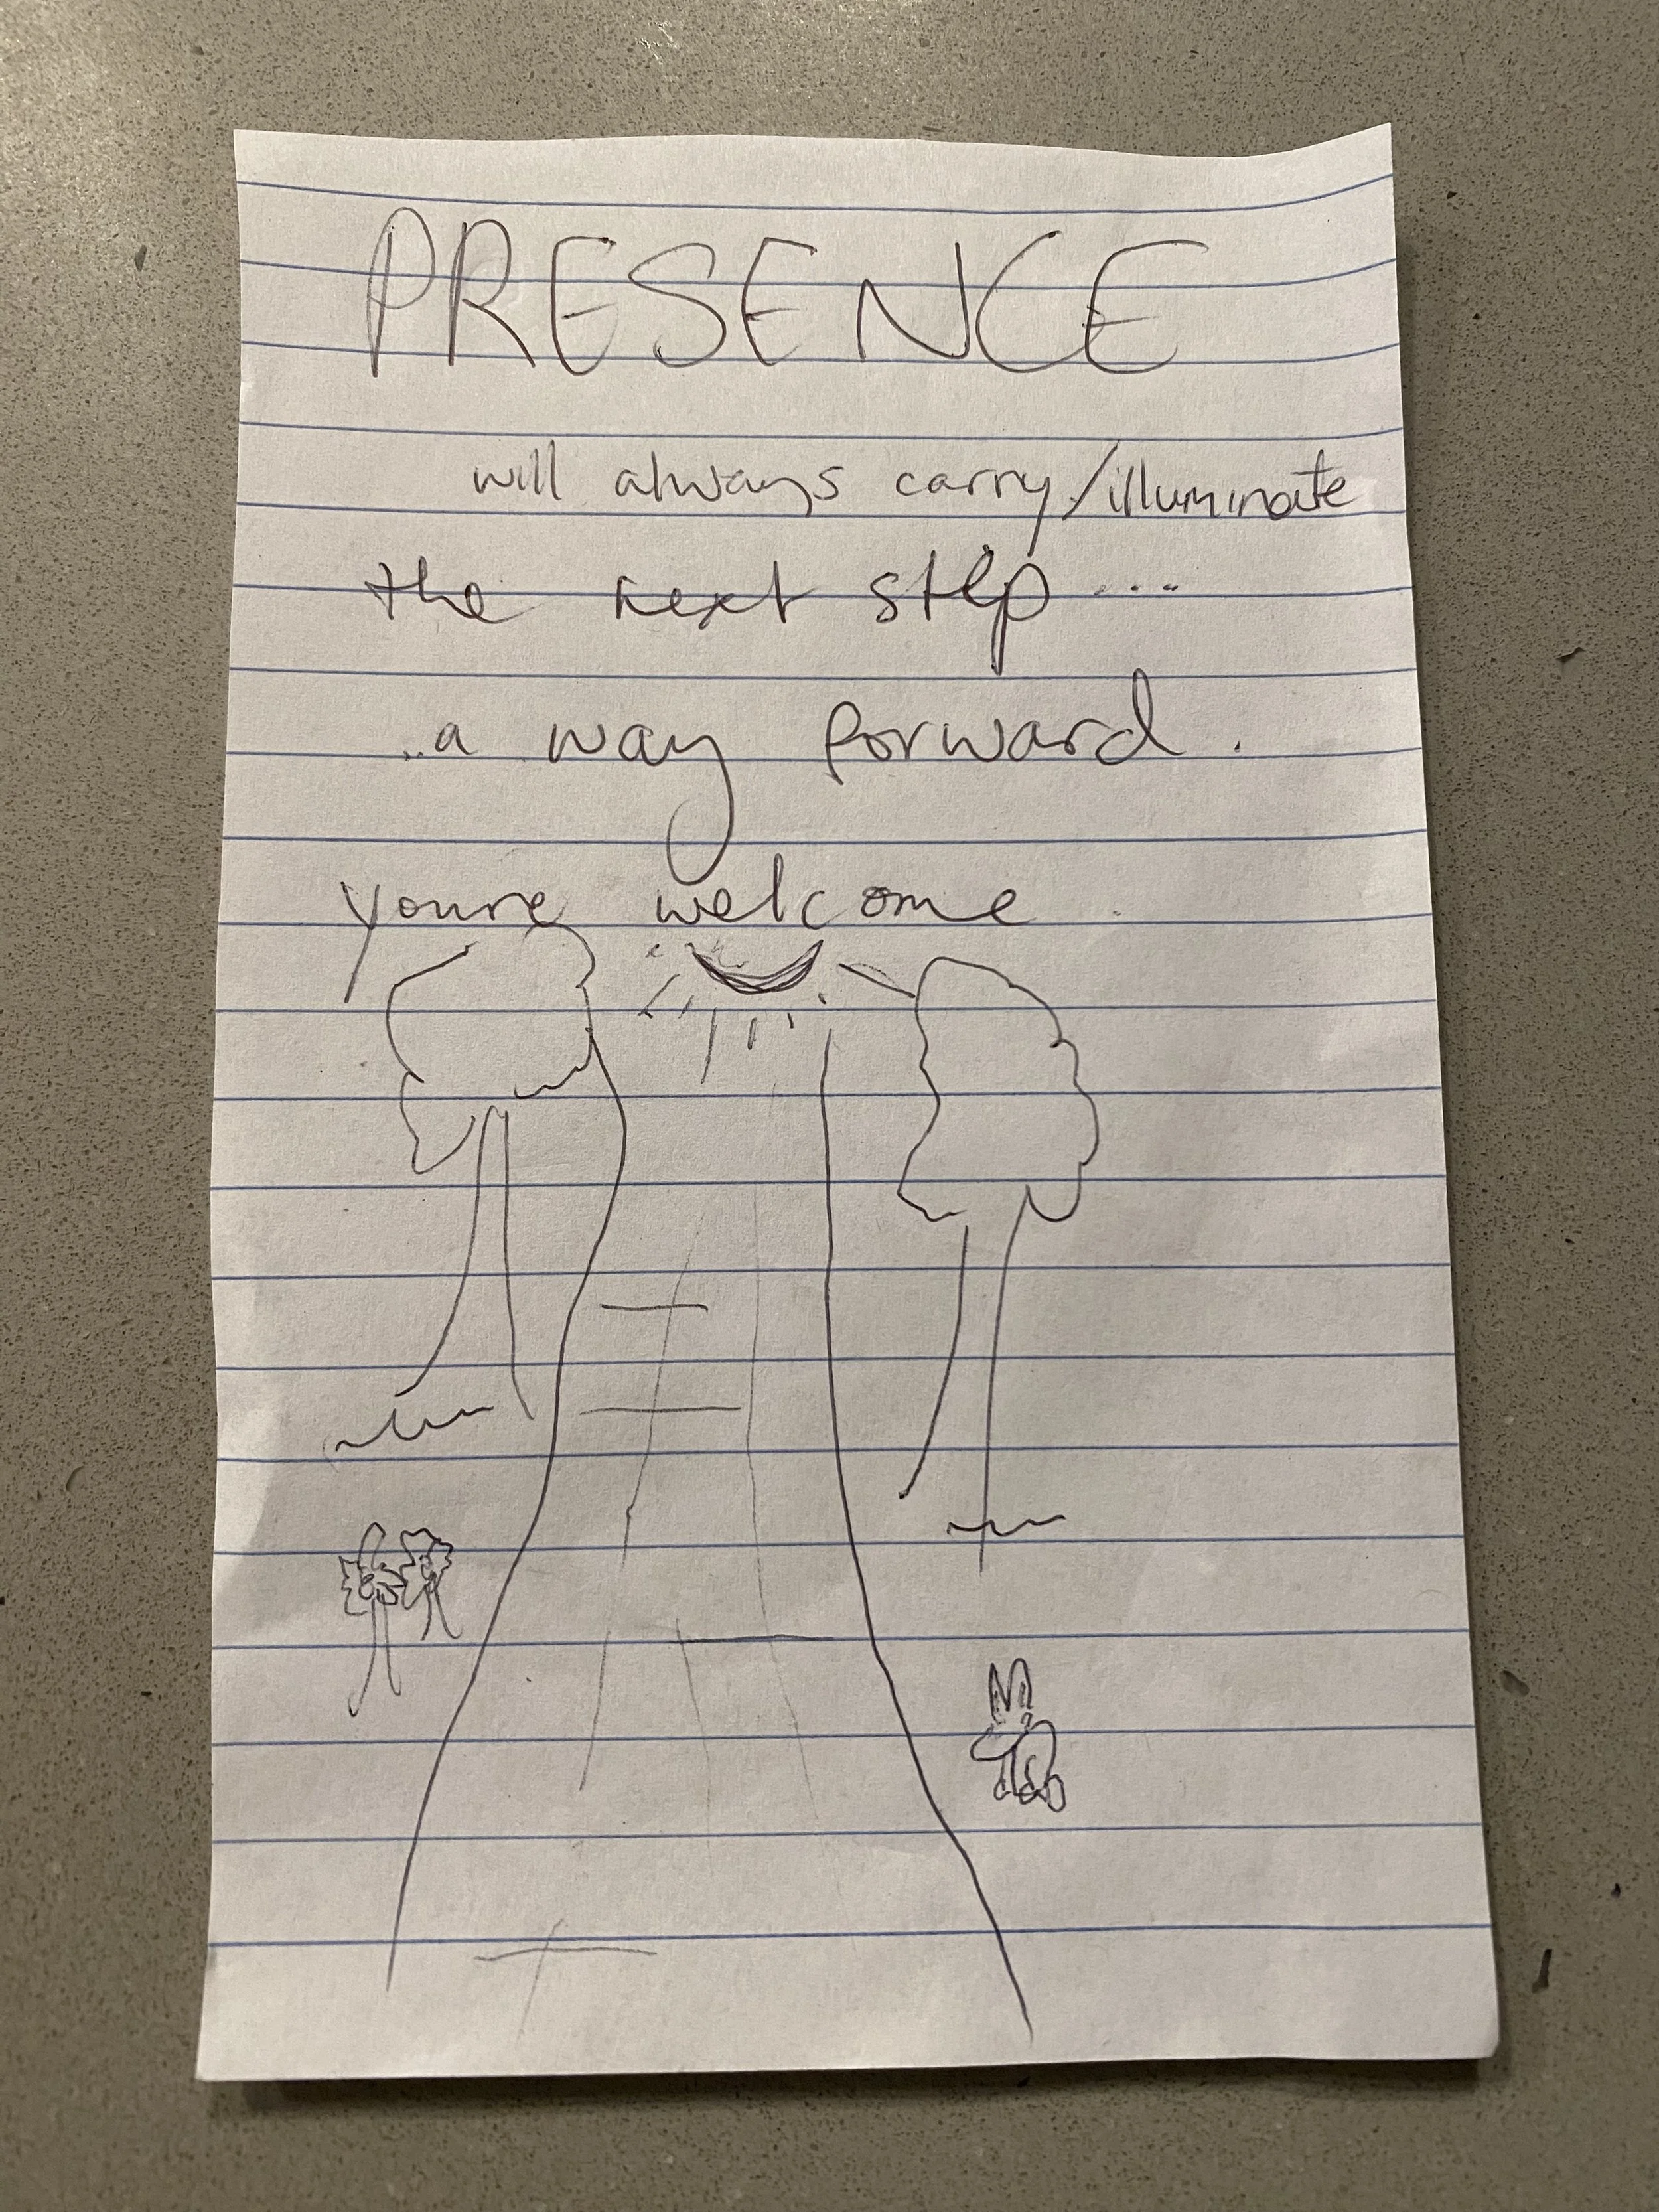 PRESENCE
will always carry/illuminate
the next step...
..a way forward.
youre welcome.